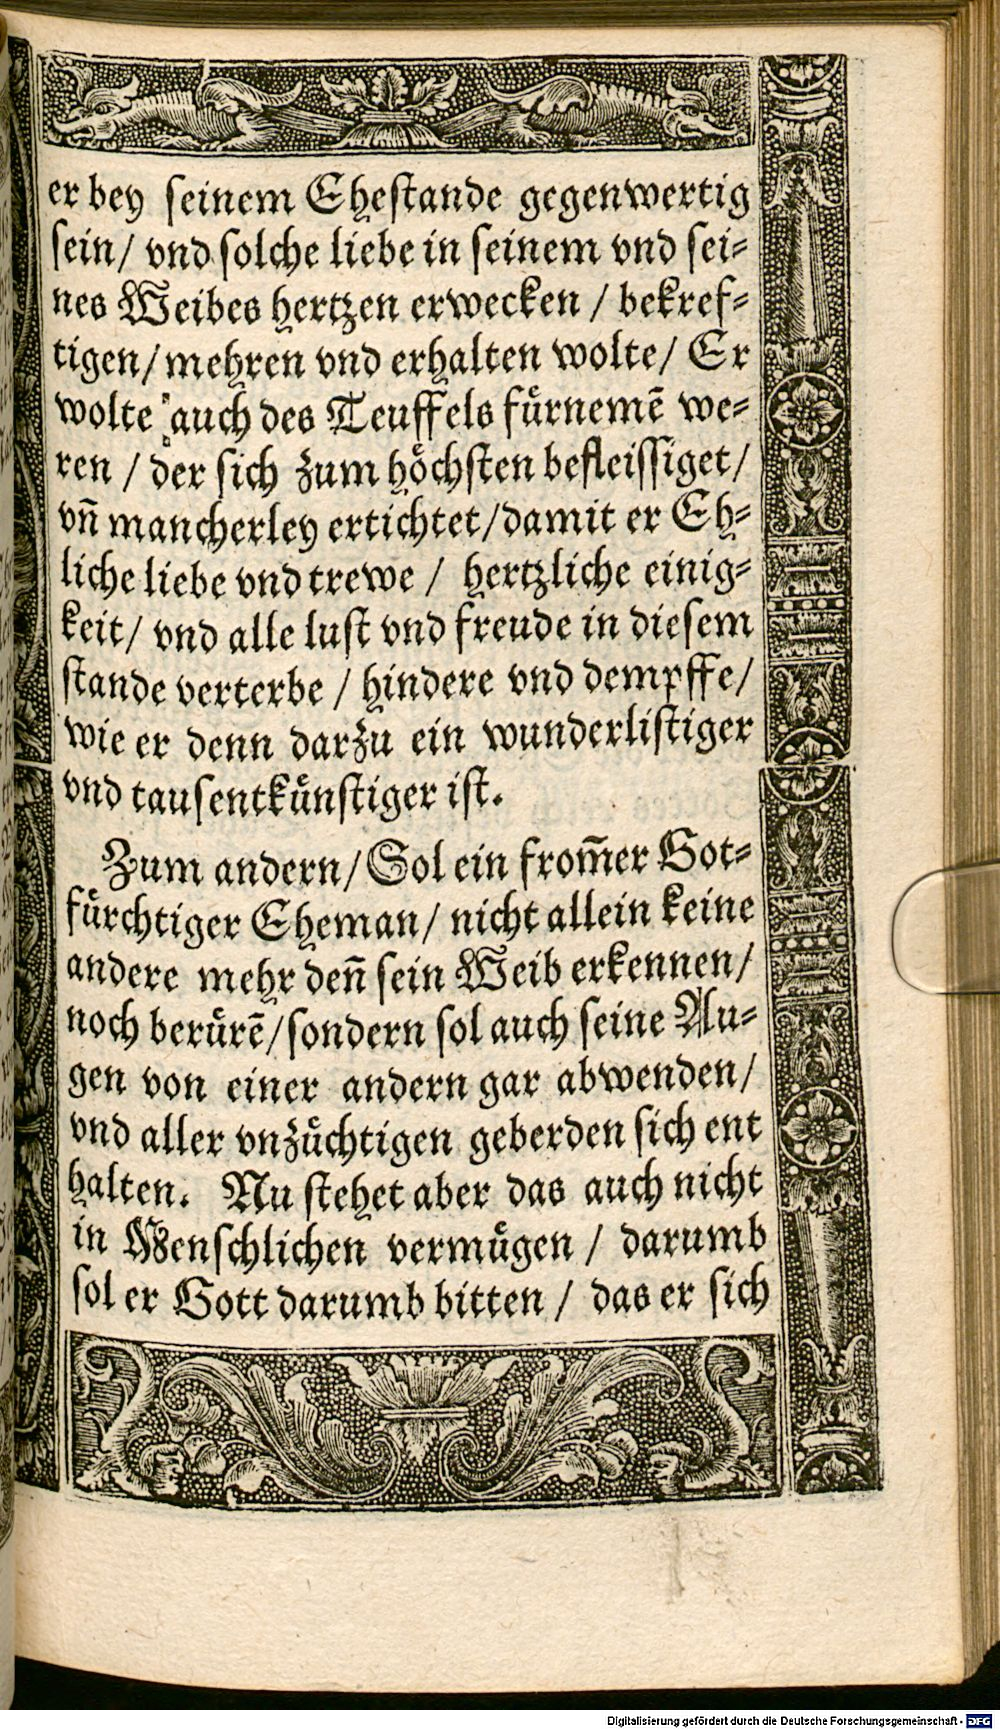 er bey seinem Ehestande gegenwertig
sein/ vnd solche liebe in seinem vnd sei-
nes Weibes hertzen erwecken / bekref-
tigen/ mehren vnd erhalten wolte/ Er
wolte auch des Teuffels fuͤrnemẽ we-
ren / der sich zum hoͤchsten befleissiget/
vñ mancherley ertichtet/ damit er Eh-
liche liebe vnd trewe / hertzliche einig-
keit/ vnd alle lust vnd freude in diesem
stande verterbe / hindere vnd dempffe/
wie er denn darzu ein wunderlistiger
vnd tausentkuͤnstiger ist.
Zum andern/ Sol ein from̃er Got-
fuͤrchtiger Eheman/ nicht allein keine
andere mehr deñ sein Weib erkennen/
noch beruͤrẽ/ sondern sol auch seine Au-
gen von einer andern gar abwenden/
vnd aller vnzuͤchtigen geberden sich ent
halten. Nu stehet aber das auch nicht
in Menschlichen vermuͤgen / darumb
sol er Gott darumb bitten / das er sich
Digitalisierung gefördert durch die Deutsche Forschungsgemeinschaft - DFG